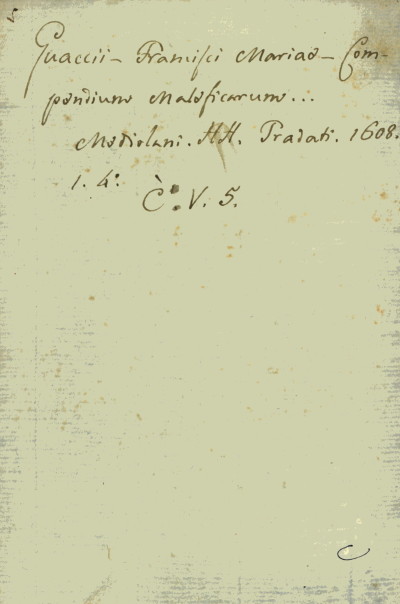 Guaccii - Francisci Mariae - Com-
pendium Maleficarum...
Mediolani. HH. Tradati. 1608.
1. 4°.
C. V. 5.